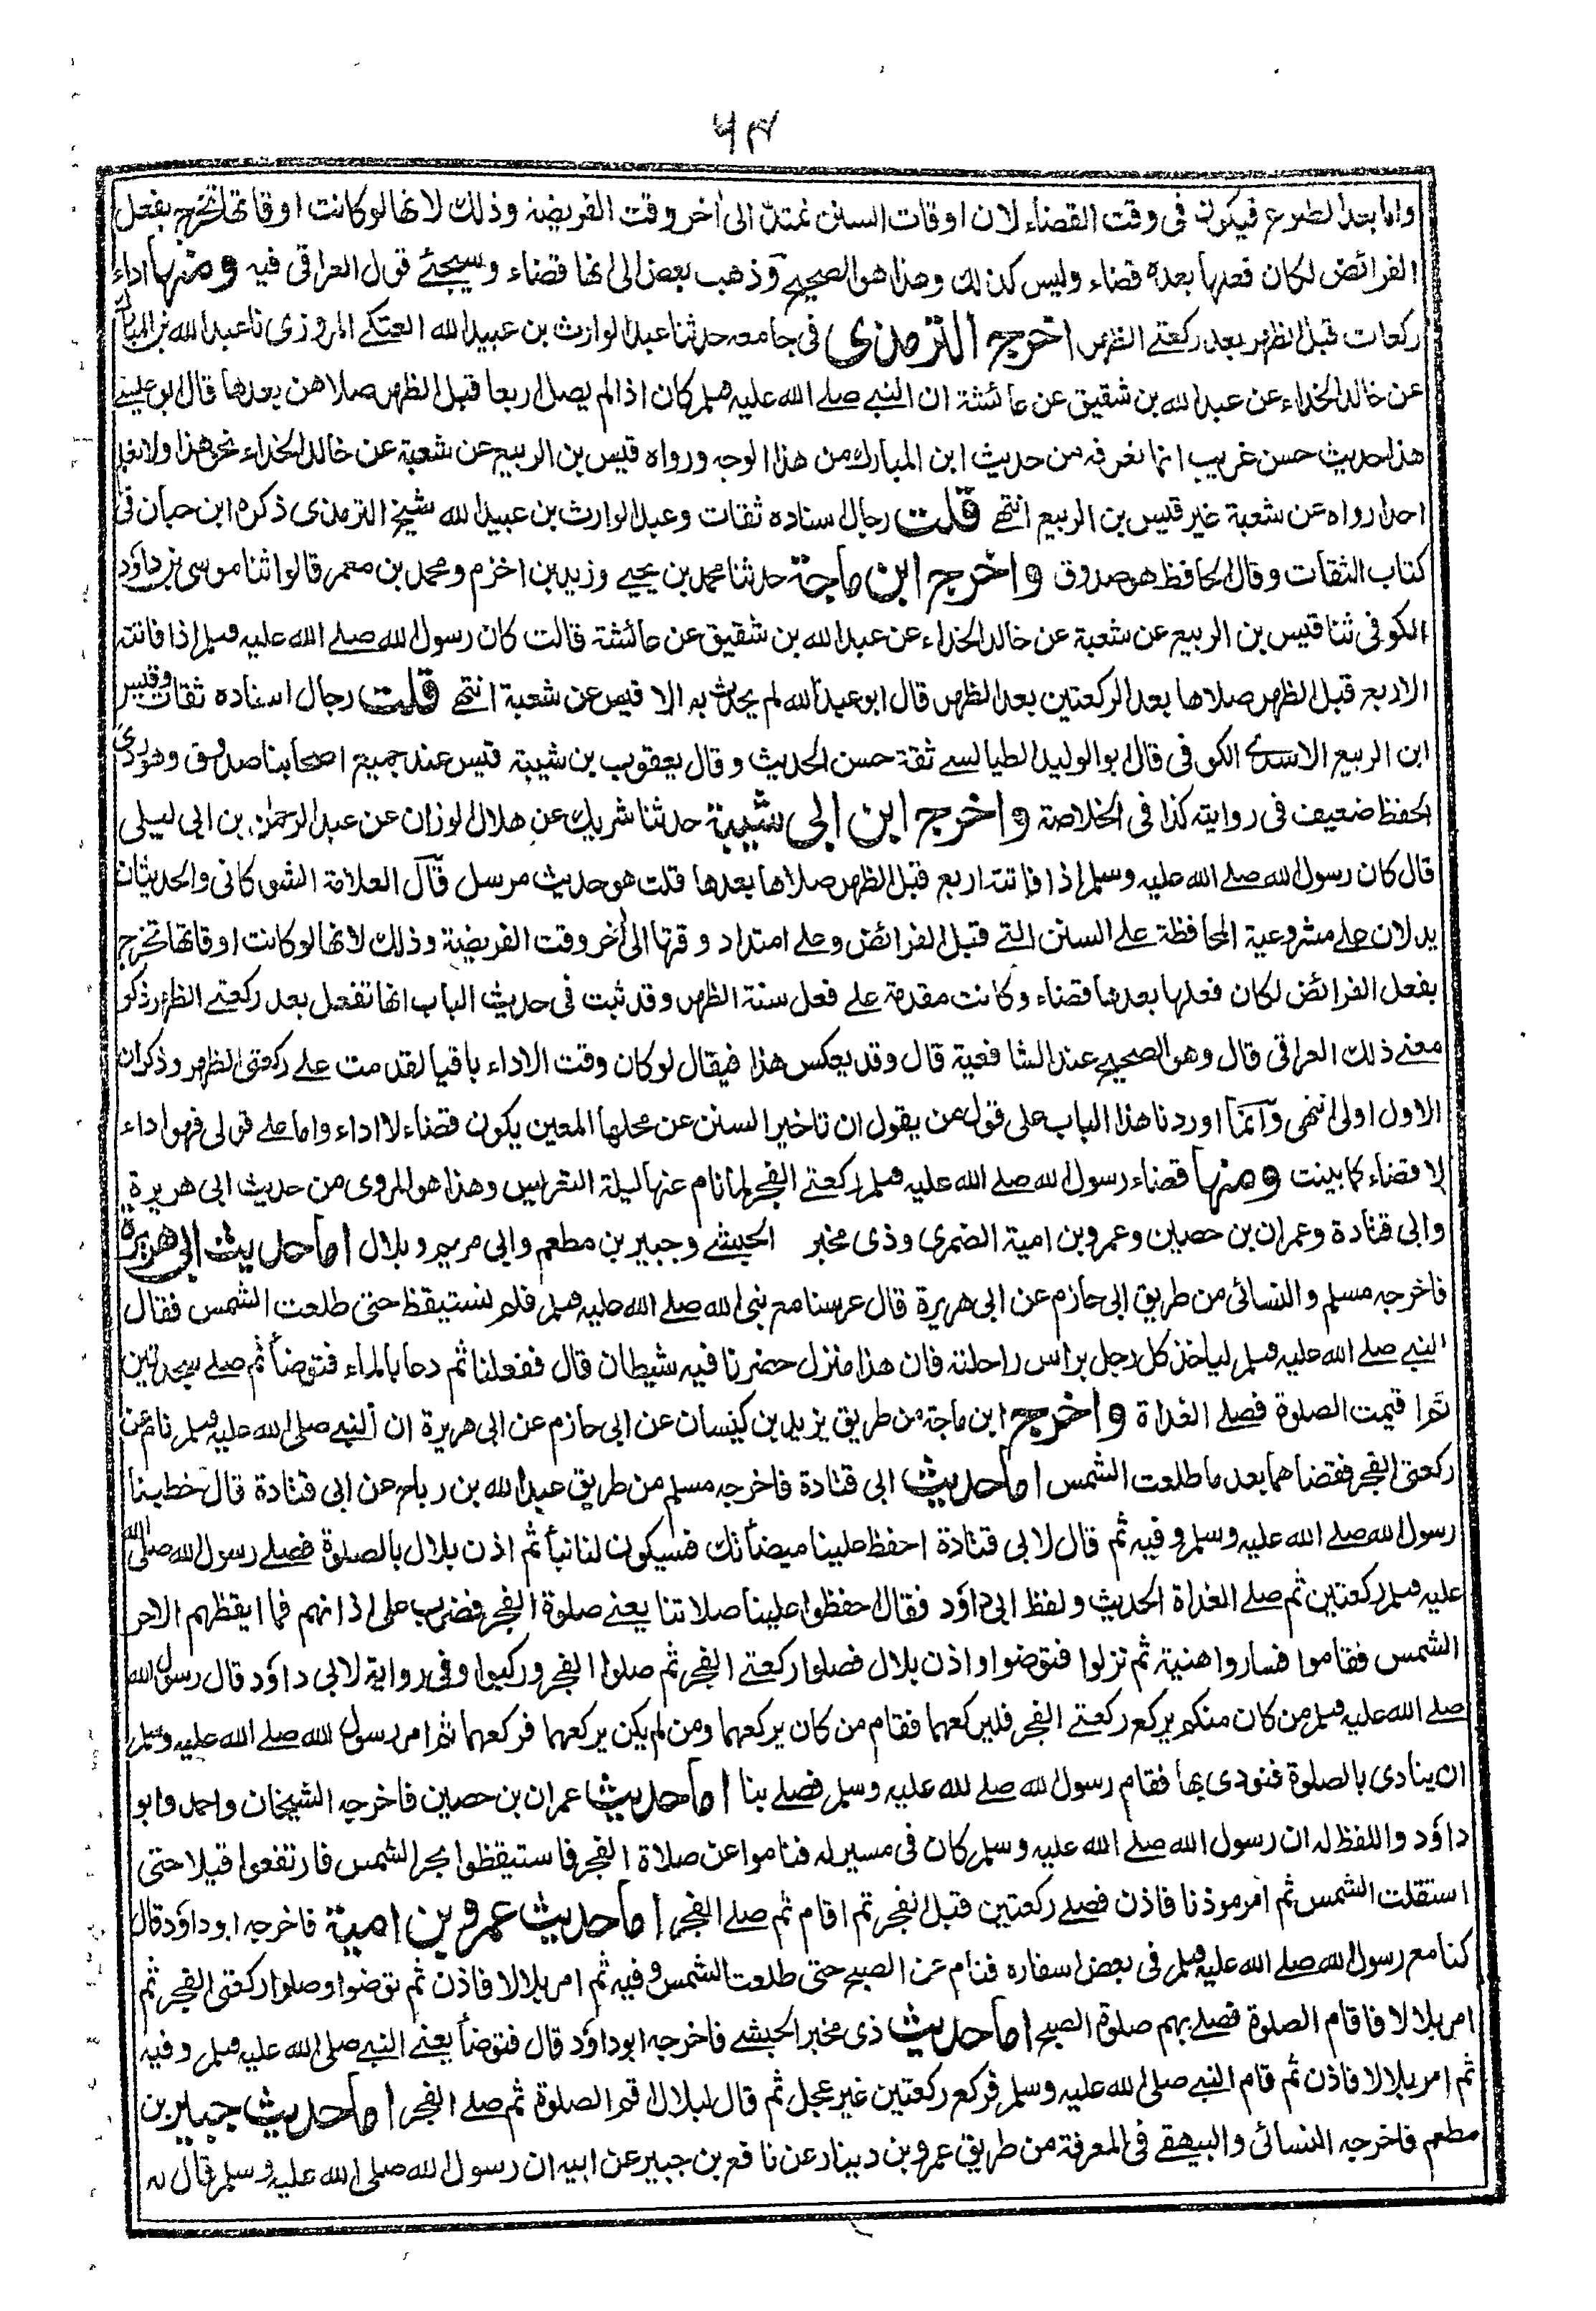 ٦٣
واما بعد الطلوع فيكون فى وقت القضاء لان اوقات السنن تمتد الى اخر وقت الفريضة وذلك لانها لو كانت اوقاتها تخرج بفعل
الفرائض لكان فعلها بعده قضاء وليس كذلك وهذا هو الصحيح وذهب بعض الى انها قضاء وسيجئ قول العراقى فيه ومنها اداء
ركعات قبل الظهر بعد ركعتے الظهر اخرج الترمذى فى جامعه حدثنا عبد الوارث بن عبيد الله العتكے المروزى نا عبد الله بن المبارك
عن خالد الحذاء عن عبد الله بن شقيق عن عائشة ان النبے صلے الله عليه وسلم كان اذا لم يصل اربعا قبل الظهر صلاهن بعدها قال ابو عيسے
هذا حديث حسن غريب انما نعرفه من حديث ابن المبارك من هذا الوجه ورواه قيس بن الربيع عن شعبة عن خالد الحذاء نحو هذا ولا نعلم
احدا رواه عن شعبة غير قيس بن الربيع انتهے قلت رجال اسناده ثقات وعبد الوارث بن عبيد الله شيخ الترمذى ذكره ابن حبان فى
كتاب الثقات وقال الحافظ هو صدوق واخرج ابن ماجة حدثنا محمد بن يحيے وزيد بن اخزم ومحمد بن معمر قالوا ثنا موسى بن داؤد
الكوفى ثنا قيس بن الربيع عن شعبة عن خالد الحذاء عن عبد الله بن شقيق عن عائشة قالت كان رسول الله صلے الله عليه وسلم اذا فاتته
الاربع قبل الظهر صلاها بعد الركعتين بعد الظهر قال ابو عبد الله لم يحدث به الا قيس عن شعبة انتهے قلت رجال اسناده ثقات وقيس
ابن الربيع الاسدے الكوفى قال ابو الوليد الطيالسے ثقة حسن الحديث وقال يعقوب بن شيبة قيس عند جميع اصحابنا صدوق وهو ردى
الحفظ ضعيف فى روايته كذا فى الخلاصة واخرج ابن ابى شيبة حدثنا شريك عن هلال الوزان عن عبد الرحمن بن ابى ليلى
قال كان رسول الله صلے الله عليه وسلم اذا فاتته اربع قبل الظهر صلاها بعدها قلت هو حديث مرسل قال العلامة الشوكانى والحديثان
يدلان علے مشروعية المحافظة علے السنن التے قبل الفرائض وعلے امتداد وقتها الى اخر وقت الفريضة وذلك لانها لو كانت اوقاتها تخرج
بفعل الفرائض لكان فعلها بعدها قضاء وكانت مقدمة علے فعل سنة الظهر وقد ثبت فى حديث الباب انها تفعل بعد ركعتے الظهر ذكر
معنے ذلك العراقى قال وهو الصحيح عند الشافعية قال وقد يعكس هذا فيقال لو كان وقت الاداء باقيا لقدمت علے ركعتى الظهر وذكر ان
الاول اولى انتهى وانما اوردنا هذا الباب على قول من يقول ان تاخير السنن عن محلها المعين يكون قضاء لا اداء واما علے قولى فهو اداء
لا قضاء كما بينت ومنها قضاء رسول الله صلے الله عليه وسلم ركعتے الفجر لما نام عنها ليلة التعريس وهذا هو المروى من حديث ابى هريرة
وابى قتادة وعمران بن حصين وعمرو بن امية الضمرى وذى مخبر الحبشے وجبير بن مطعم وابى مريم وبلال اما حديث ابى هريرة
فاخرجه مسلم والنسائى من طريق ابى حازم عن ابى هريرة قال عرسنا مع نبى الله صلے الله عليه وسلم فلم نستيقظ حتى طلعت الشمس فقال
النبے صلے الله عليه وسلم لياخذ كل رجل براس راحلته فان هذا منزل حضرنا فيه شيطان قال ففعلنا ثم دعا بالماء فتوضأ ثم صلے سجدتين
ثم اقيمت الصلوة فصلے الغداة واخرج ابن ماجة من طريق يزيد بن كيسان عن ابى حازم عن ابى هريرة ان النبے صلى الله عليه وسلم نام عن
ركعتى الفجر فقضاهما بعد ما طلعت الشمس اما حديث ابى قتادة فاخرجه مسلم من طريق عبد الله بن رباح عن ابى قتادة قال خطبنا
رسول الله صلے الله عليه وسلم وفيه ثم قال لابى قتادة احفظ علينا ميضأتك فسيكون لنا نبأ ثم اذن بلال بالصلوة فصلے رسول الله صلى الله
عليه وسلم ركعتين ثم صلے الغداة الحديث ولفظ ابى داؤد فقال احفظوا علينا صلاتنا يعنے صلوة الفجر فضرب على اذانهم فما ايقظهم الا حر
الشمس فقاموا فساروا هنية ثم نزلوا فتوضوا واذن بلال فصلوا ركعتے الفجر ثم صلوا الفجر وركبوا وفى رواية لابى داؤد قال رسول الله
صلے الله عليه وسلم من كان منكم يركع ركعتے الفجر فليركعهما فقام من كان يركعهما ومن لم يكن يركعهما فركعهما ثم امر رسول الله صلے الله عليه وسلم
ان ينادى بالصلوة فنودى بها فقام رسول الله صلے لله عليه وسلم فصلے بنا اما حديث عمران بن حصين فاخرجه الشيخان واحمد وابو
داؤد واللفظ له ان رسول الله صلے الله عليه وسلم كان فى مسير له فناموا عن صلاة الفجر فاستيقظوا بحر الشمس فارتفعوا قليلا حتى
استقلت الشمس ثم امر موذنا فاذن فصلے ركعتين قبل الفجر ثم اقام ثم صلے الفجر اما حديث عمرو بن امية فاخرجه ابو داؤد قال
كنا مع رسول الله صلے الله عليه وسلم فى بعض اسفاره فنام عن الصبح حتى طلعت الشمس وفيه ثم امر بلالا فاذن ثم توضوا وصلوا ركعتى الفجر ثم
امر بلالا فاقام الصلوة فصلے بهم صلوة الصبح اما حديث ذى مخبر الحبشے فاخرجه ابو داؤد قال فتوضأ يعنے النبے صلى الله عليه وسلم وفيه
ثم امر بلالا فاذن ثم قام النبے صلى الله عليه وسلم فركع ركعتين غير عجل ثم قال لبلال اقم الصلوة ثم صلے الفجر اما حديث جبير بن
مطعم فاخرجه النسائى والبيهقے فى المعرفة من طريق عمرو بن دينار عن نافع بن جبير عن ابيه ان رسول الله صلى الله عليه وسلم قال له